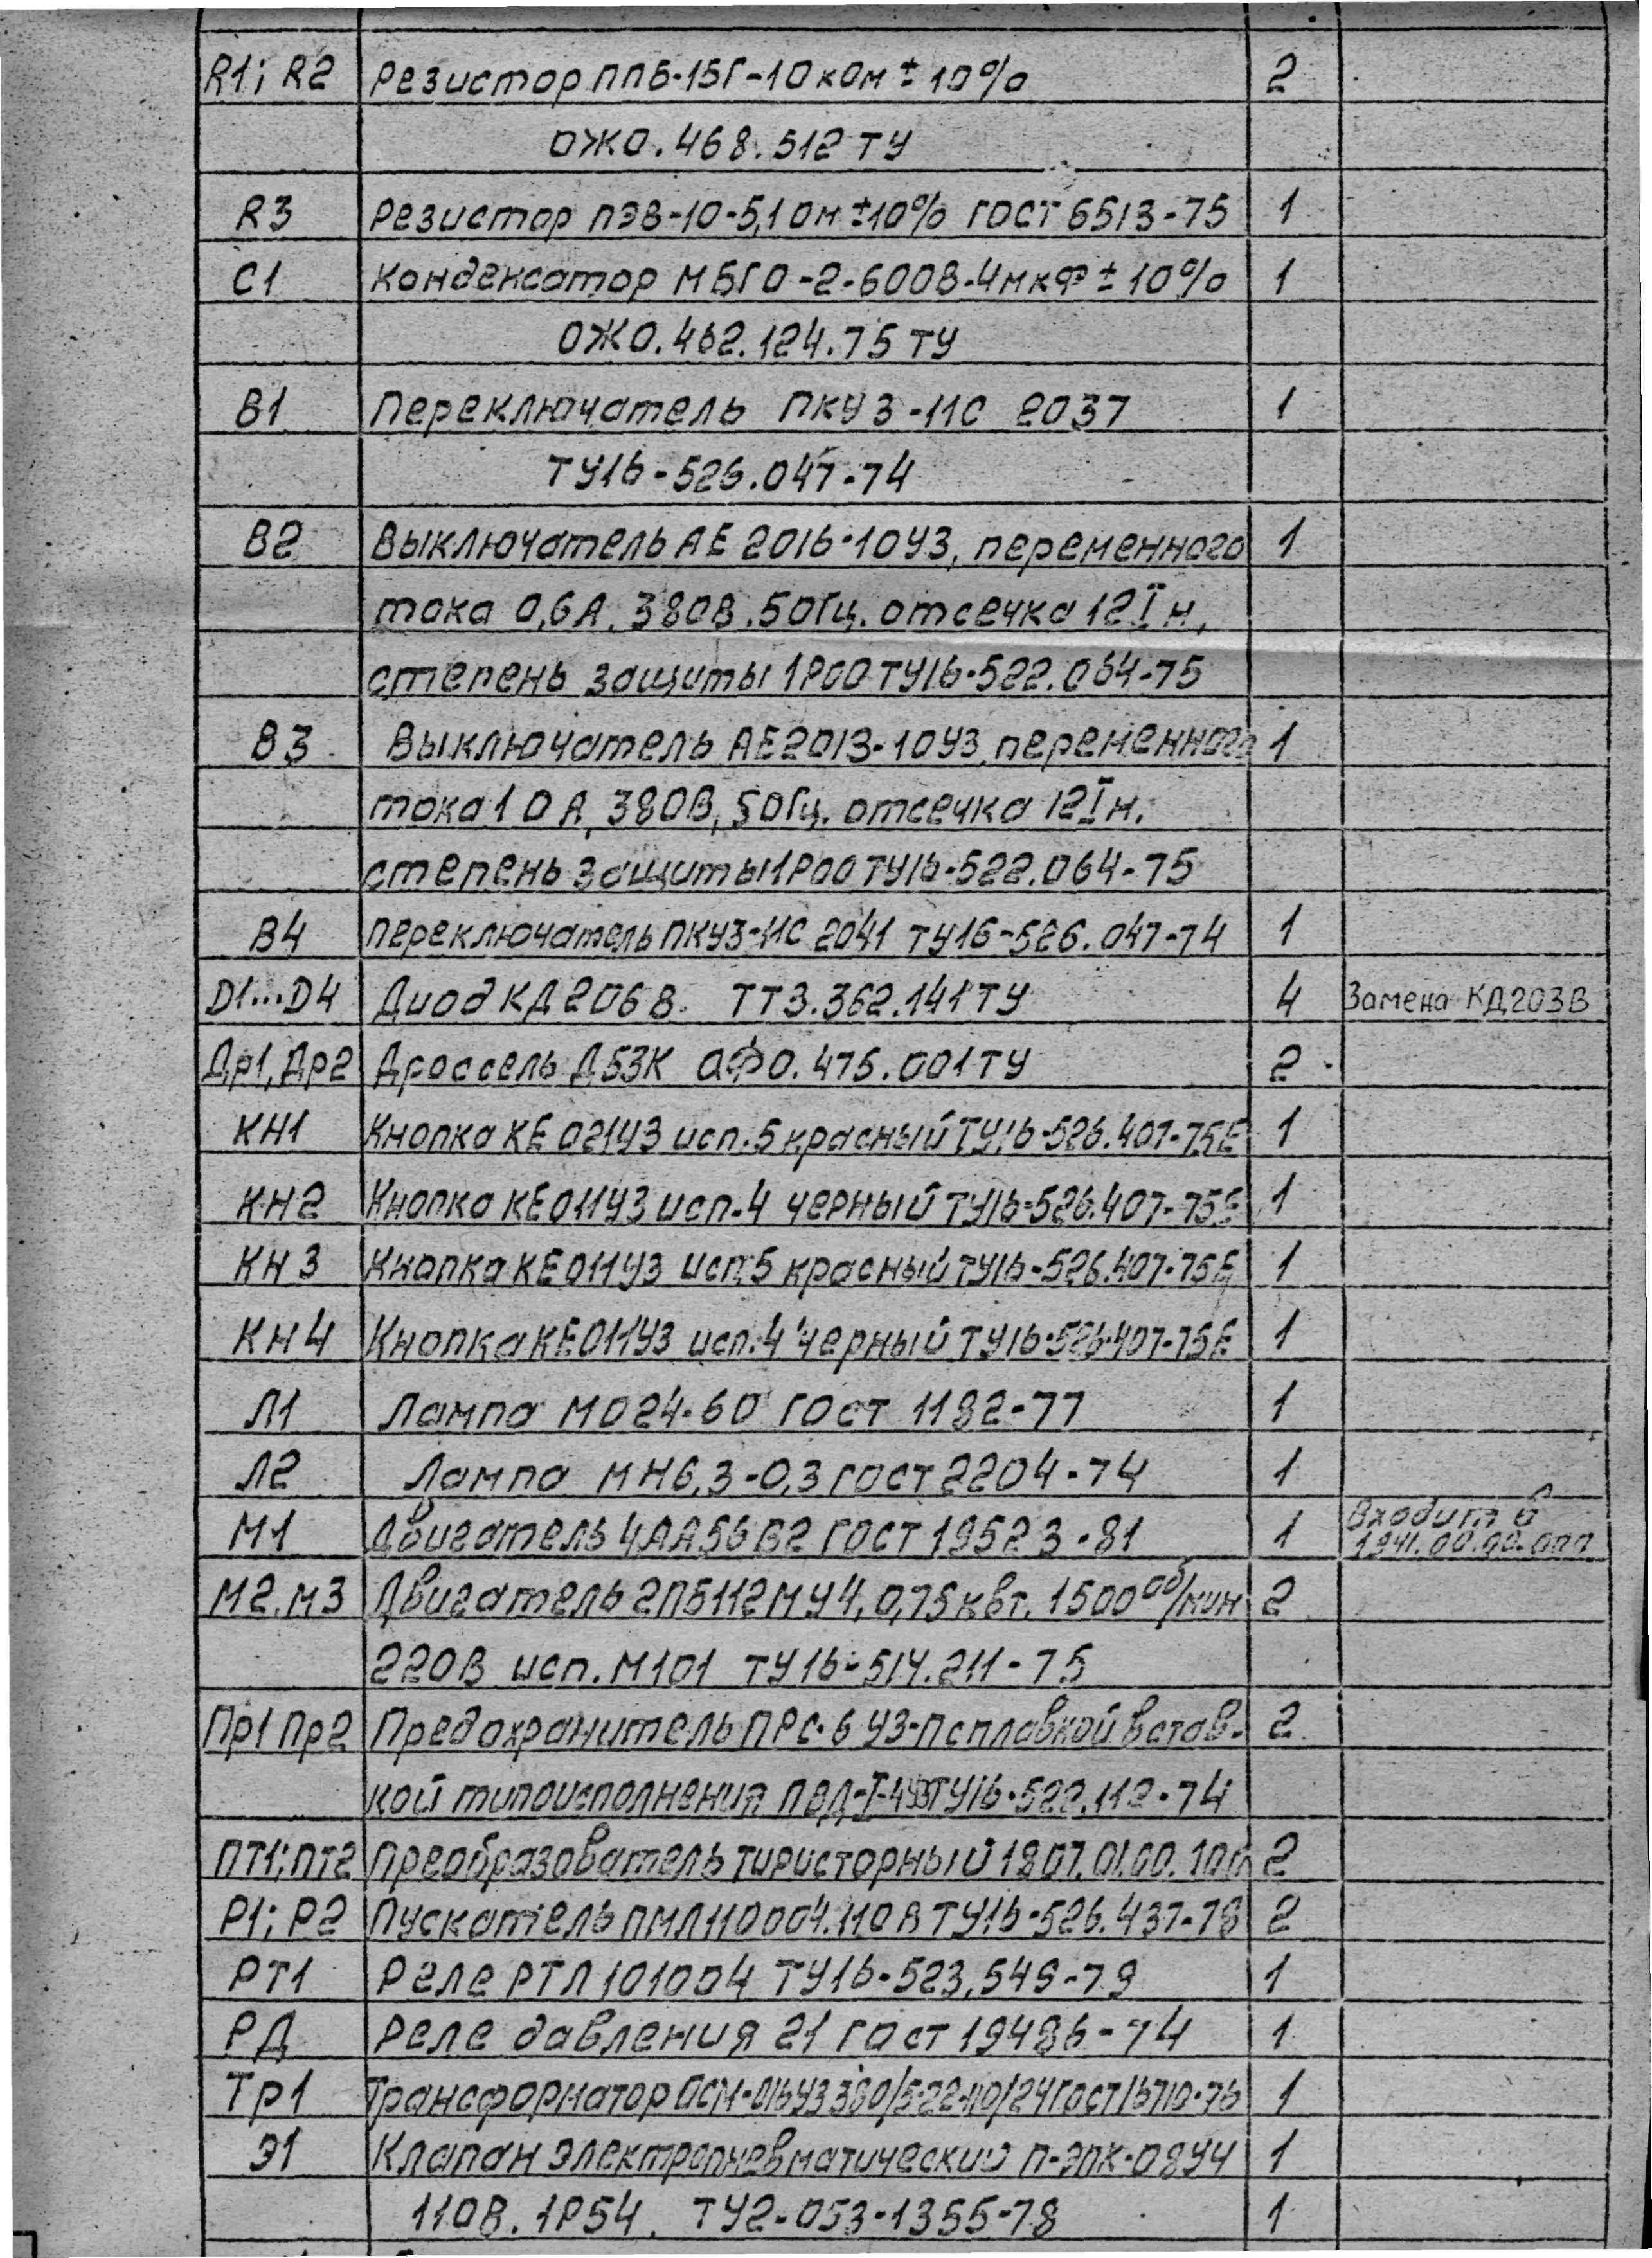 R1; R2 Резистор ППБ-15Г-10 кОм ± 10% 2
ОЖО.468.512 ТУ
R3 Резистор ПЭВ-10-5,1 Ом ±10% ГОСТ 6513-75 1
С1 Конденсатор МБГО-2-600В-4мкФ ± 10% 1
ОЖО.462.124.75 ТУ
В1 Переключатель ПКУ3-11С 2037 1
ТУ16-526.047-74
В2 Выключатель АЕ 2016-10У3, переменного 1
тока 0,6А, 380В.50Гц. отсечка 12Iн,
степень защиты 1Р00 ТУ16-522.064-75
В3 Выключатель АЕ2013-10У3, переменного 1
тока 10А, 380В, 50Гц. отсечка 12Iн.
степень защиты 1Р00 ТУ16-522.064-75
В4 Переключатель ПКУ3-11С 2041 ТУ16-526.047-74 1
D1...D4 Диод КД206В. ТТ3.362.141ТУ 4 Замена КД203В
Др1, Др2 Дроссель Д53К ОФ0.475.001ТУ 2
КН1 Кнопка КЕ 021У3 исп.5 красный ТУ16-526.407-75Е 1
КН2 Кнопка КЕ011У3 исп.4 черный ТУ16-526.407-75Е 1
КН3 Кнопка КЕ011У3 исп.5 красный ТУ16-526.407-75Е 1
КН4 Кнопка КЕ011У3 исп.4 черный ТУ16-526.407-75Е 1
Л1 Лампа МО24-60 ГОСТ 1182-77 1
Л2 Лампа МН6,3-0,3 ГОСТ 2204-74 1
М1 Двигатель 4АА56В2 ГОСТ 19523-81 1 Входит в
1941.00.00.000
М2, М3 Двигатель 2ПБ112МУ4, 0,75квт, 1500 об/мин 2
220В исп. М101 ТУ16-514.211-75
Пр1 Пр2 Предохранитель ПРС-6 У3-П с плавкой встав- 2
кой типоисполнения ПВД-I-4У3 ТУ16-522.112-74
ПТ1; ПТ2 Преобразователь тиристорный 1807.01.00.100 2
Р1; Р2 Пускатель ПМЛ110004.110В ТУ16-526.437-78 2
РТ1 Реле РТЛ101004 ТУ16-523.549-79 1
РД Реле давления 21 ГОСТ 19486-74 1
Тр1 Трансформатор ОСМ-016У3 380/5-22-110/24 ГОСТ 16710-76 1
Э1 Клапан электропневматический П-ЭПК-08У4 1
110В. 1Р54. ТУ2-053-1355-78 1